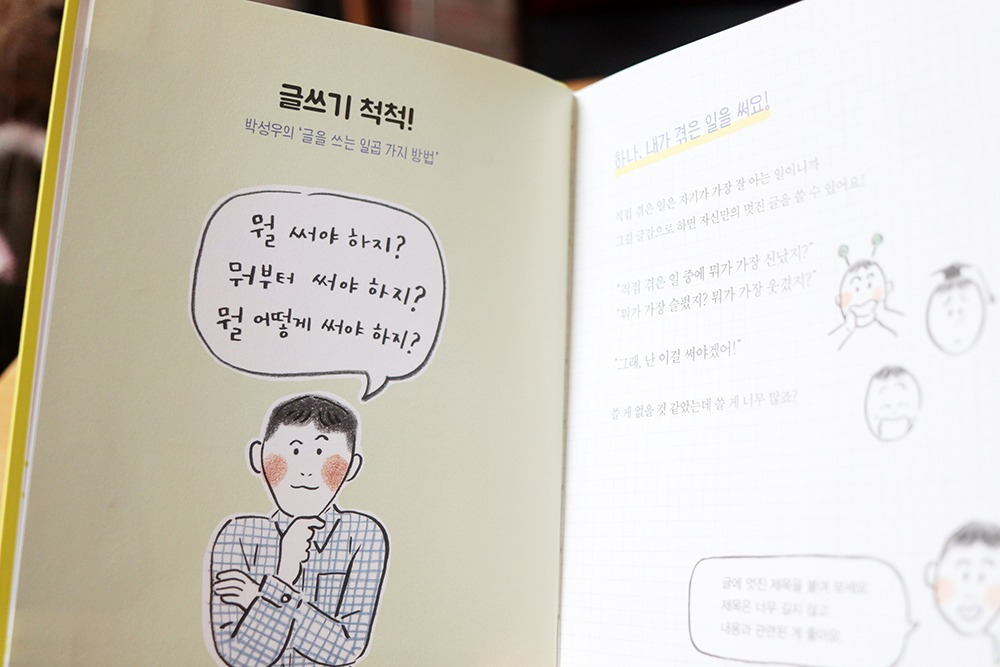 글쓰기 척척!
박성우의 '글을 쓰는 일곱 가지 방법'
뭘 써야 하지?
뭐부터 써야 하지?
뭘 어떻게 써야 하지?
하나. 내가 겪은 일을 써요!
직접 겪은 일은 자기가 가장 잘 아는 일이니까
그걸 글감으로 하면 자신만의 멋진 글을 쓸 수 있어요!
"직접 겪은 일 중에 뭐가 가장 신났지?"
"뭐가 가장 슬펐지? 뭐가 가장 웃겼지?"
"그래, 난 이걸 써야겠어!"
쓸 게 없을 것 같았는데 쓸 게 너무 많죠?
글에 멋진 제목을 붙여 보세요.
제목은 너무 길지 않고
내용과 관련된 게 좋아요.